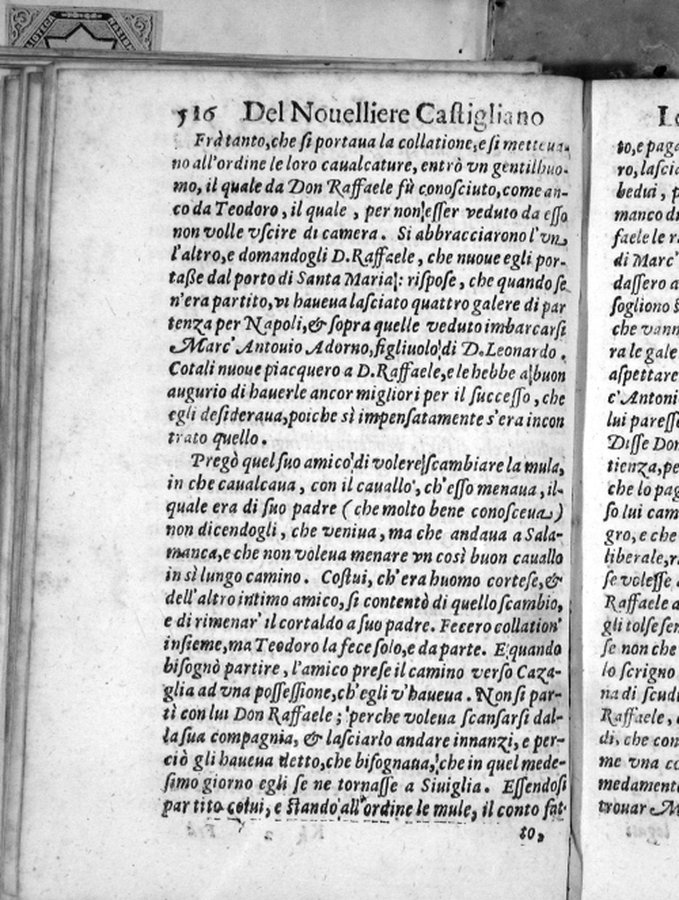 516 Del Nouelliere Castigliano
Frà tanto, che si portaua la collatione, e si metteua-
no all'ordine le loro caualcature, entrò vn gentilhuo-
mo, il quale da Don Raffaele fù conosciuto, come an-
co da Teodoro, il quale, per non esser veduto da esso
non volle vscire di camera. Si abbracciarono l'vn
l'altro, e domandogli D. Raffaele, che nuoue egli por-
taße dal porto di Santa Maria: rispose, che quando se
n'era partito, vi haueua lasciato quattro galere di par
tenza per Napoli, & sopra quelle veduto imbarcarsi
Marc' Antouio Adorno, figliuolo di D. Leonardo.
Cotali nuoue piacquero a D. Raffaele, e le hebbe a buon
augurio di hauerle ancor migliori per il successo, che
egli desideraua, poiche sì impensatamente s'era incon
trato quello.
Pregò quel suo amico di volere scambiare la mula,
in che caualcaua, con il cauallo, ch'esso menaua, il-
quale era di suo padre (che molto bene conosceua)
non dicendogli, che veniua, ma che andaua a Sala-
manca, e che non voleua menare vn così buon cauallo
in sì lungo camino. Costui, ch'era huomo cortese, &
dell'altro intimo amico, si contentò di quello scambio,
e di rimenar' il cortaldo a suo padre. Fecero collation'
insieme, ma Teodoro la fece solo, e da parte. E quando
bisognò partire, l'amico prese il camino verso Caza-
glia ad vna possessione, ch'egli v'haueua. Non si par-
tì con lui Don Raffaele; perche voleua scansarsi dal-
la sua compagnia, & lasciarlo andare innanzi, e per-
ciò gli haueua detto, che bisognaua, che in quel mede-
simo giorno egli se ne tornasse a Siuiglia. Essendosi
partito colui, e stando all'ordine le mule, il conto fat-
to,
to, e paga
ro, lascia
bedui, p
manco di
faele le r
di Marc'
dassero a
sogliono s
che vann
ra le gale
aspettare
c'Antoni
lui paresse
Disse Don
tienza, pe
che lo pag
so lui cam
gro, e che
liberale, r
se volesse
Raffaele a
gli tolse sen
se non che
lo scrigno
na di scud
Raffaele,
di, che con
me vna co
medamente
trouar M